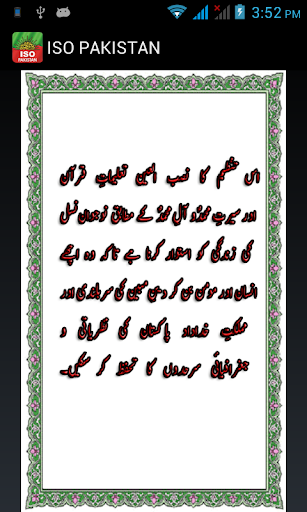 3:52 PM
ISO PAKISTAN
ISO
PAKISTAN
اس تنظیم کا نصب العین تعلیمات قرآن
اور سیرت محمدؐ و آل محمدؑ کے مطابق نوجوان نسل
کی زندگی کو استوار کرنا ہے تاکہ وہ اچھے
انسان اور مومن بن کر دین مبین کی سربلندی اور
مملکت خداداد پاکستان کی نظریاتی و
جغرافیائی سرحدوں کا تحفظ کر سکیں۔